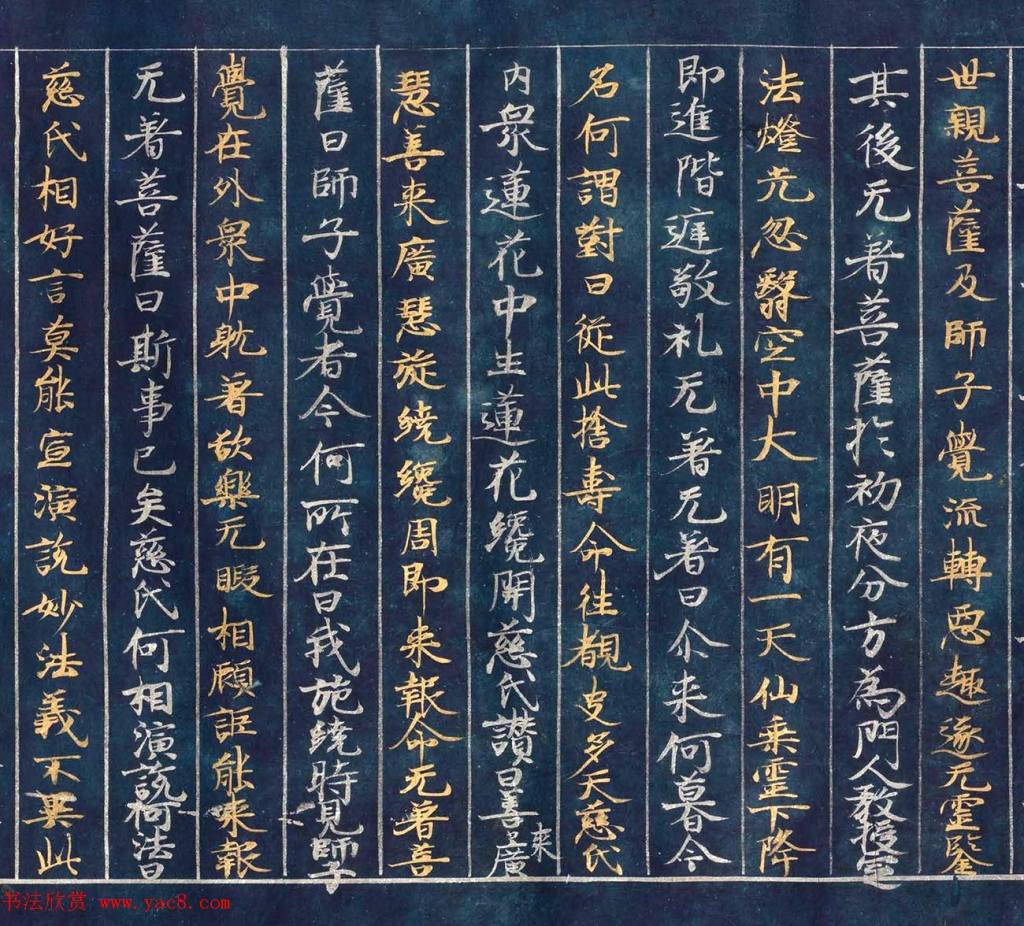 世親菩薩及師子覺流轉惡趣遂无靈鑒
其後无著菩薩於初夜分方為門人教授定
法燈光忽翳空中大明有一天仙乗靈下降
即進階遲敬礼无著无著曰尒来何暮今
名何謂對曰從此捨壽命往覩史多天慈氏
内衆蓮花中生蓮花纔開慈氏讃曰善来廣
慧善来廣慧旋繞纔周即来報命无著菩
薩曰師子覺者今何所在曰我旋繞時見師子
覺在外衆中躭著欲樂无暇相顧詎能来報
无著菩薩曰斯事已矣慈氏何相演説何法曰
慈氏相好言莫能宣演説妙法義不異此
书法欣赏 www.yac8.com